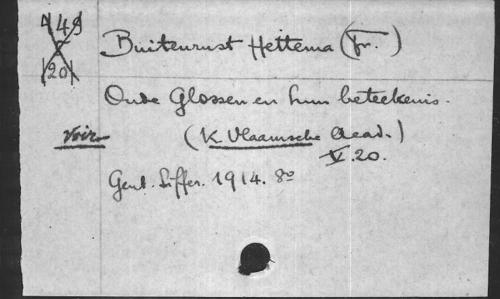 449
V
20
Buitenrust Hettema (Fr.)
Oude Glossen en hun beteekenis.
voir (K. Vlaamsche Acad.)
V. 20.
Gent. Siffer. 1914. 8º